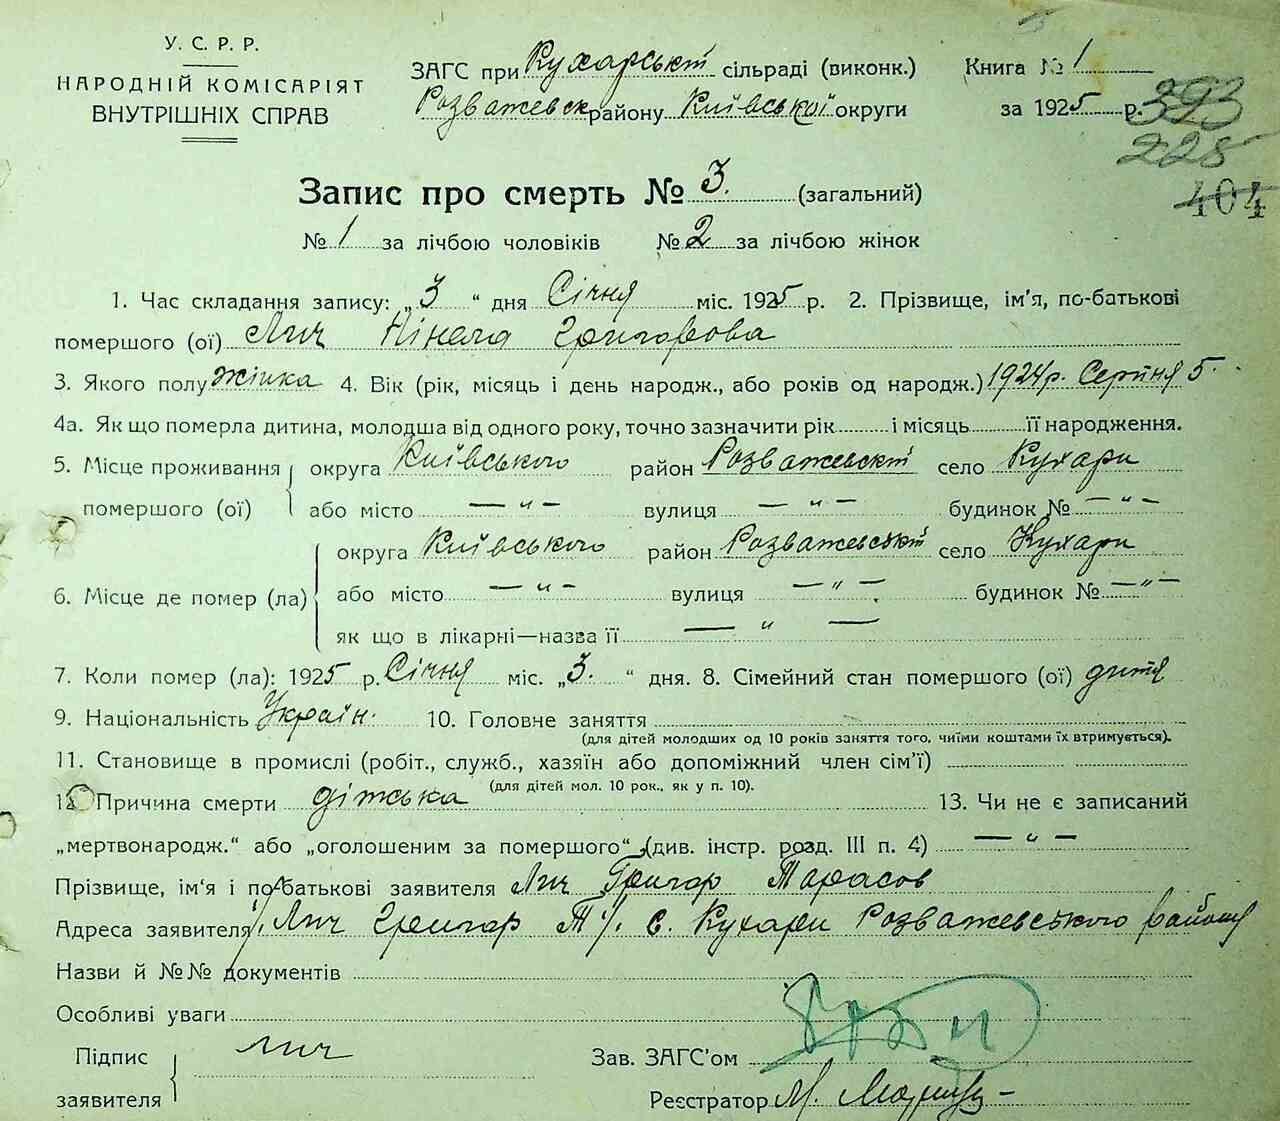 У. С. Р. Р.
НАРОДНІЙ КОМІСАРІЯТ
ВНУТРІШНІХ СПРАВ
ЗАГС при Кухарськт сільраді (виконк.)
Розважевск району Київської округи
Книга № 1
за 1925 р.
393
228
404
Запис про смерть № 3. (загальний)
№ 1 за лічбою чоловіків № 2 за лічбою жінок
1. Час складання запису: „3 “ дня Січня міс. 1925 р. 2. Прізвище, ім'я, по-батькові
помершого (ої) Лич Нінела Григорова
3. Якого полу жінка 4. Вік (рік, місяць і день народж., або років од народж.) 1924р. Серпня 5
4а. Як що померла дитина, молодша від одного року, точно зазначити рік і місяць її народження.
5. Місце проживання помершого (ої) округа Київського район Розважевскт село Кухари
або місто — „ — вулиця — „ — будинок № — „ —
6. Місце де помер (ла) округа Київського район Розважевськт село Кухари
або місто — „ — вулиця — „ — будинок № — „ —
як що в лікарні—назва її — „ —
7. Коли помер (ла): 1925 р. Січня міс. „3. “ дня. 8. Сімейний стан помершого (ої) дитя
9. Національність Україн. 10. Головне заняття
(для дітей молодших од 10 років заняття того, чиїми коштами їх втримується).
11. Становище в промислі (робіт., служб., хазяїн або допоміжний член сім'ї)
(для дітей мол. 10 рок., як у п. 10).
12 Причина смерти дітська 13. Чи не є записаний
„мертвонародж.“ або „оголошеним за помершого“ (див. інстр. розд. III п. 4) — „ —
Прізвище, ім'я і по-батькові заявителя Лич Григор Тарасов
Адреса заявителя Лич Григор Т/. с. Кухари Розважевського району
Назви й №№ документів
Особливі уваги
Підпис заявителя Лич
Зав. ЗАГС'ом
Реєстратор М.